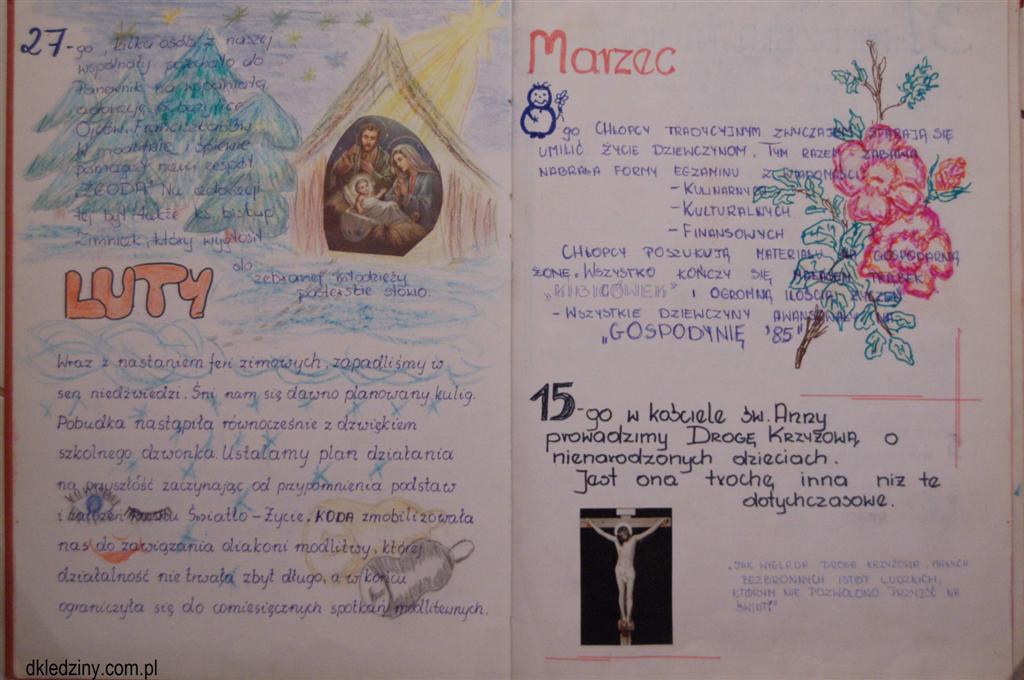 27-go, kilka osób z naszej
wspólnoty pojechało do
Panewnik na wspaniałą
adorację w bazylice
Ojców Franciszkanów
W modlitwie i śpiewie
pomagał nam zespół
"ZGODA" Na adoracji
tej był także ks. biskup
Zimniak, który wygłosił
do
zebranej młodzieży
pasterskie słowo.
LUTY
Wraz z nastaniem ferii zimowych, zapadliśmy w
sen niedźwiedzi. Śni nam się dawno planowany kulig.
Pobudka nastąpiła równocześnie z dźwiękiem
szkolnego dzwonka. Ustalamy plan działania
na przyszłość zaczynając od przypomnienia podstaw
i założeń Ruchu Światło-Życie. KODA zmobilizowała
nas do zawiązania diakoni modlitwy, której
działalność nie trwała zbyt długo, a w końcu
ograniczyła się do comiesięcznych spotkań modlitewnych.
Marzec
8 go CHŁOPCY TRADYCYJNYM ZWYCZAJEM STARAJĄ SIĘ
UMILIĆ ŻYCIE DZIEWCZYNOM. TYM RAZEM ZABAWA
NABRAŁA FORMY EGZAMINU Z WIADOMOŚCI
- KULINARNYCH
- KULTURALNYCH
- FINANSOWYCH
CHŁOPCY POSZUKUJĄ MATERIAŁU NA GOSPODARNĄ
ŻONĘ. WSZYSTKO KOŃCZY SIĘ
"KIBICÓWEK" I OGROMNĄ ILOŚCIĄ ŻYCZEŃ
- WSZYSTKIE DZIEWCZYNY AWANSOWAŁY NA
"GOSPODYNIĘ '85"
15-go w kościele św. Anny
prowadzimy DROGĘ KRZYŻOWĄ o
nienarodzonych dzieciach.
Jest ona trochę inna niż te
dotychczasowe.
"JAK WYGLĄDA DROGA KRZYŻOWA MAŁYCH
BEZBRONNYCH ISTOT LUDZKICH,
KTÓRYM NIE POZWOLONO PRZYJŚĆ NA
ŚWIAT?"
dkledziny.com.pl